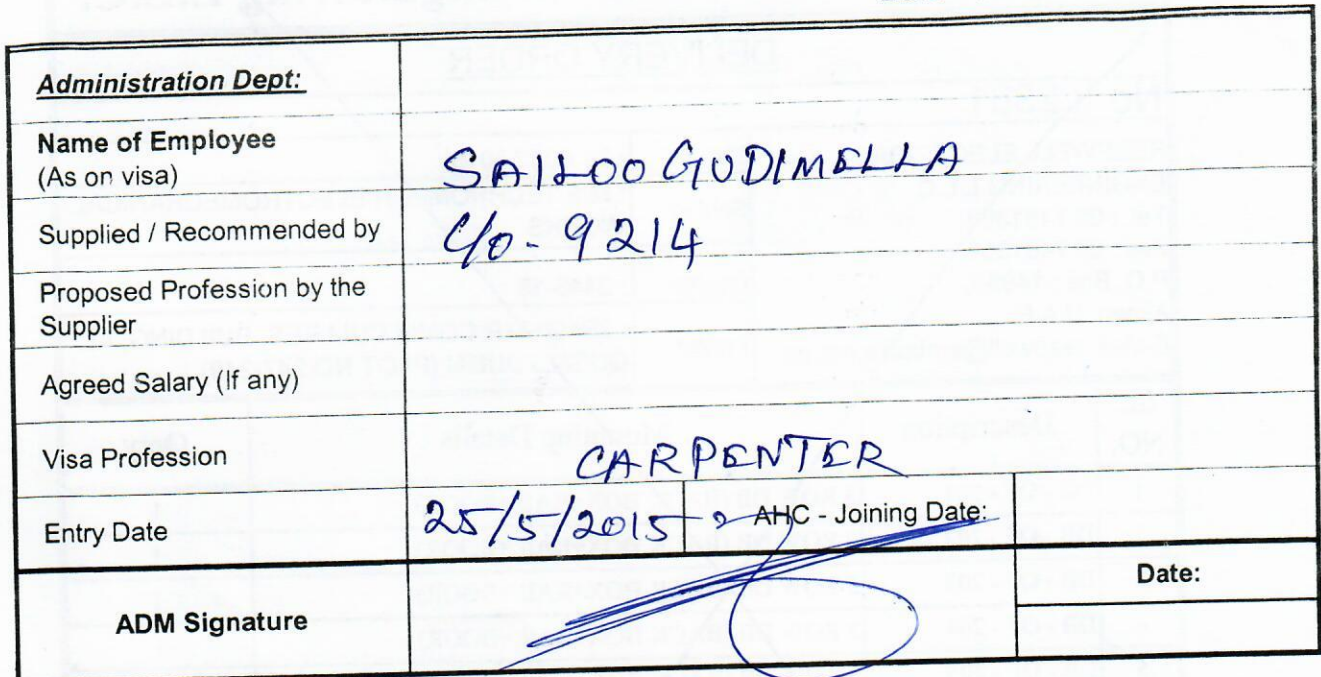 Administration Dept:
Name of Employee
(As on visa)
SAILOO GUDIMELLA
Supplied / Recommended by
C/o - 9214
Proposed Profession by the
Supplier
Agreed Salary (If any)
Visa Profession
CARPENTER
Entry Date
25/5/2015
AHC - Joining Date:
ADM Signature
Date: